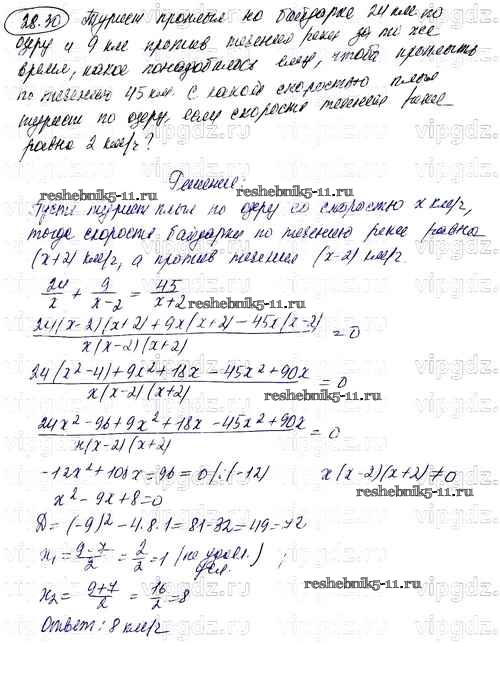 28.30 Турист проплыл на байдарке 24 км по
озеру и 9 км против течения реки за то же
время, какое понадобилось ему, чтобы проплыть
по течению 45 км. С какой скоростью плыл
турист по озеру, если скорость течения реки
равна 2 км/ч?
Решение:
reshebnik5-11.ru
Пусть турист плыл по озеру со скоростью x км/ч,
тогда скорость байдарки по течению реки равна
(x+2) км/ч, а против течения (x-2) км/ч.
24/x + 9/(x-2) = 45/(x+2)
(24(x-2)(x+2)+9x(x+2)-45x(x-2))/(x(x-2)(x+2)) = 0
(24(x²-4)+9x²+18x-45x²+90x)/(x(x-2)(x+2)) = 0
(24x²-96+9x²+18x-45x²+90x)/(x(x-2)(x+2)) = 0
-12x²+108x=96=0/:(-12) x(x-2)(x+2)≠0
x²-9x+8=0
D=(-9)²-4·8·1=81-32=49=7²
x₁=(9-7)/2=2/2=1 (не удовл. усл.)
x₂=(9+7)/2=16/2=8
Ответ: 8 км/ч